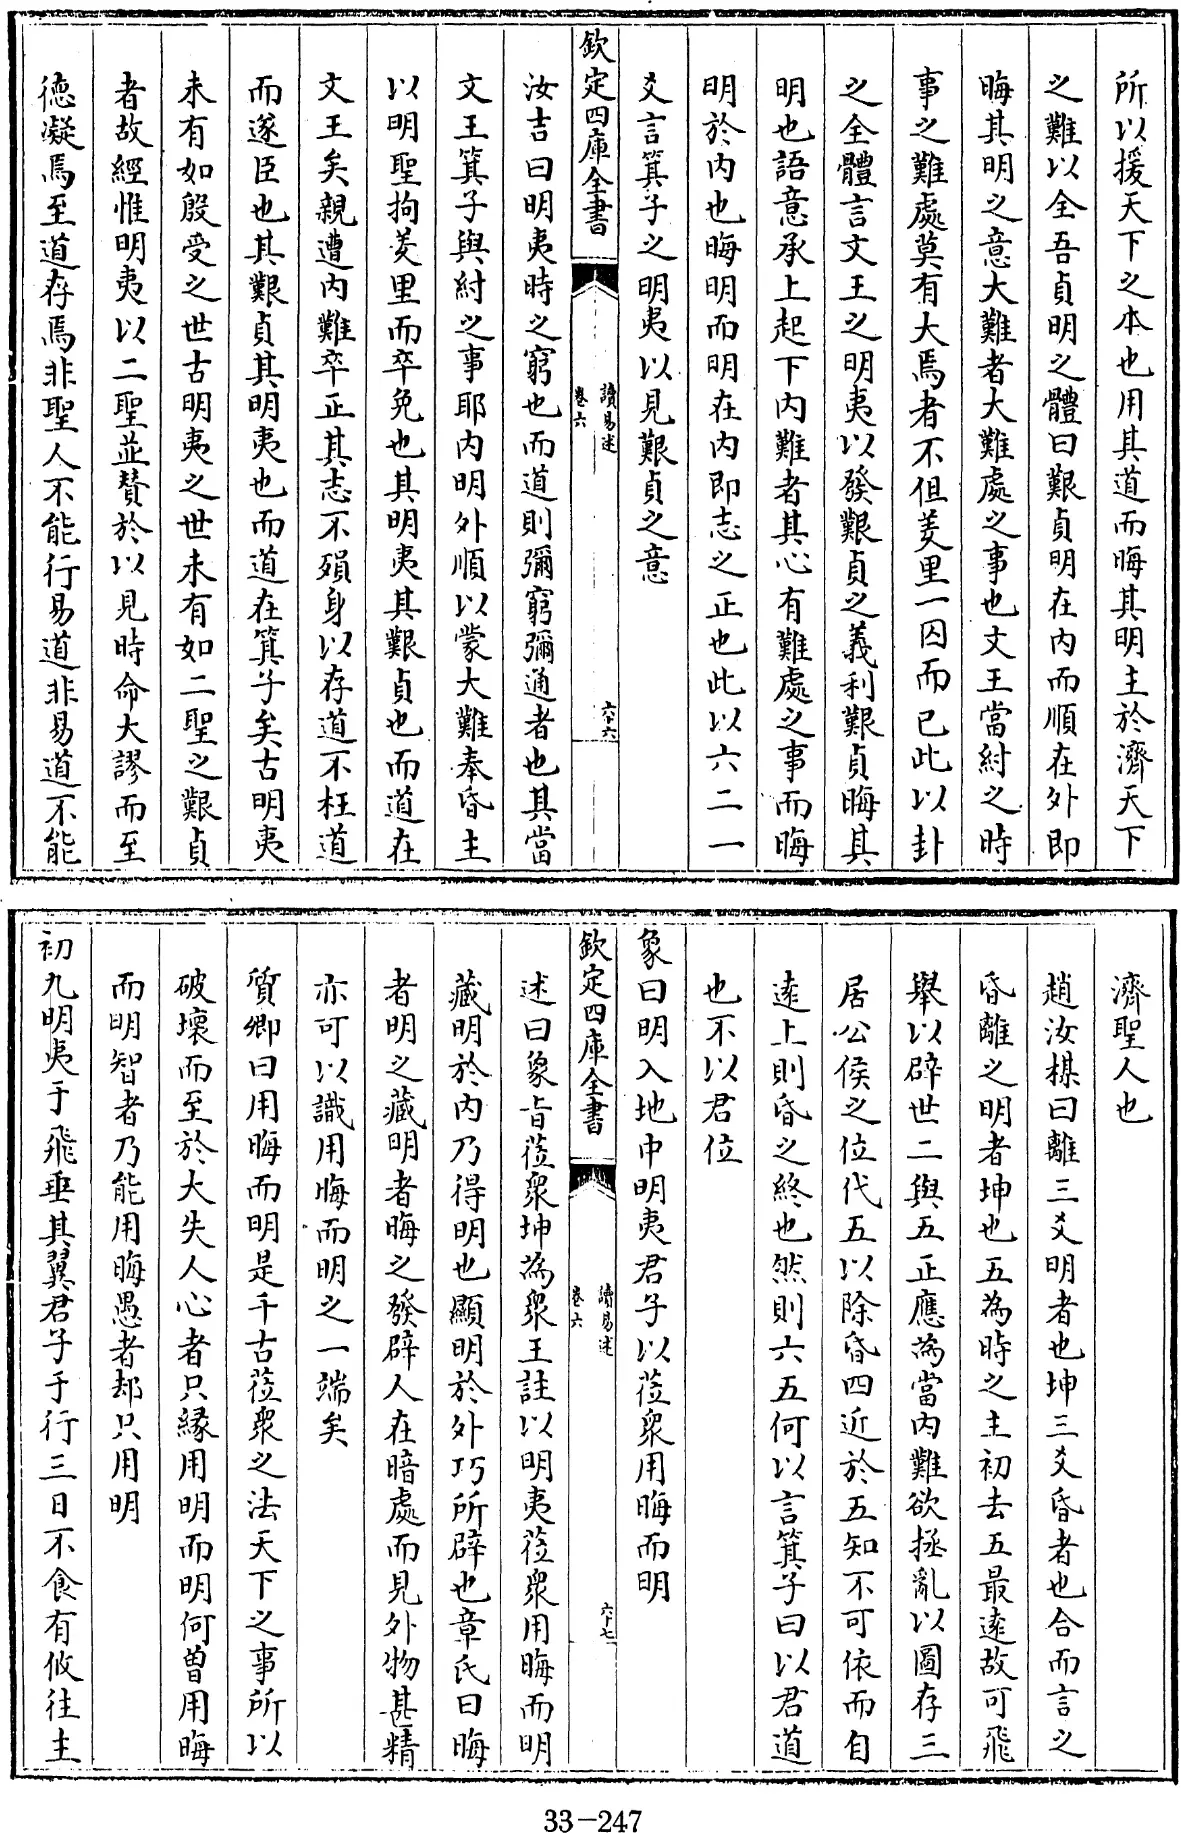 所以援天下之本也用其道而晦其明主於濟天下
之難以全吾貞明之體曰艱貞明在内而順在外即
晦其明之意大難者大難處之事也文王當紂之時
事之難處莫有大焉者不但羑里一囚而已此以卦
之全體言文王之明夷以發艱貞之義利艱貞晦其
明也語意承上起下内難者其心有難處之事而晦
明於内也晦明而明在内即志之正也此以六二一
爻言箕子之明夷以見艱貞之意
欽定四庫全書
讀易述
卷六
六十六
汝吉曰明夷時之窮也而道則彌窮彌通者也其當
文王箕子與紂之事耶内明外順以蒙大難奉昏主
以明聖拘羑里而卒免也其明夷其艱貞也而道在
文王矣親遭内難卒正其志不殞身以存道不枉道
而遂臣也其艱貞其明夷也而道在箕子矣古明夷
未有如殷受之世古明夷之世未有如二聖之艱貞
者故經惟明夷以二聖並贊於以見時命大謬而至
德凝焉至道存焉非聖人不能行易道非易道不能
濟聖人也
趙汝楳曰離三爻明者也坤三爻昏者也合而言之
昏離之明者坤也五為時之主初去五最逺故可飛
舉以辟世二與五正應為當内難欲拯亂以圖存三
居公侯之位代五以除昏四近於五知不可依而自
逺上則昏之終也然則六五何以言箕子曰以君道
也不以君位
象曰明入地中明夷君子以莅衆用晦而明
欽定四庫全書
讀易述
卷六
六十七
述曰象旨莅衆坤為衆王註以明夷莅衆用晦而明
藏明於内乃得明也顯明於外巧所辟也章氏曰晦
者明之藏明者晦之發辟人在暗處而見外物甚精
亦可以識用晦而明之一端矣
質卿曰用晦而明是千古莅衆之法天下之事所以
破壞而至於大失人心者只縁用明而明何曽用晦
而明智者乃能用晦愚者却只用明
初九明夷于飛垂其翼君子于行三日不食有攸往主
33-247